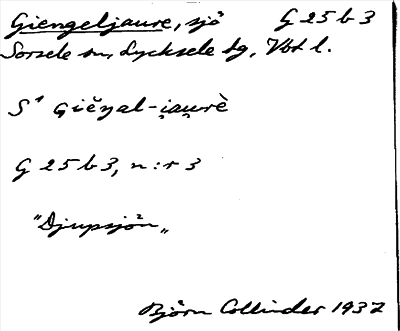 Giengeljaure, sjö G 25 b 3
Sorsele sn, Lycksele lg, Vbt l.
S¹ Giĕŋal-i̯au̯rè
G 25 b 3, n:r 3
"Djupsjön„
Björn Collinder 1937